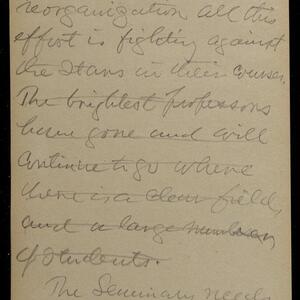 reorganization all this
effort is fighting against
the stars in their courses.
The brightest professors
have gone and will
continue to go where
there is a clear field,
and a large number
of students.
The Seminary needs